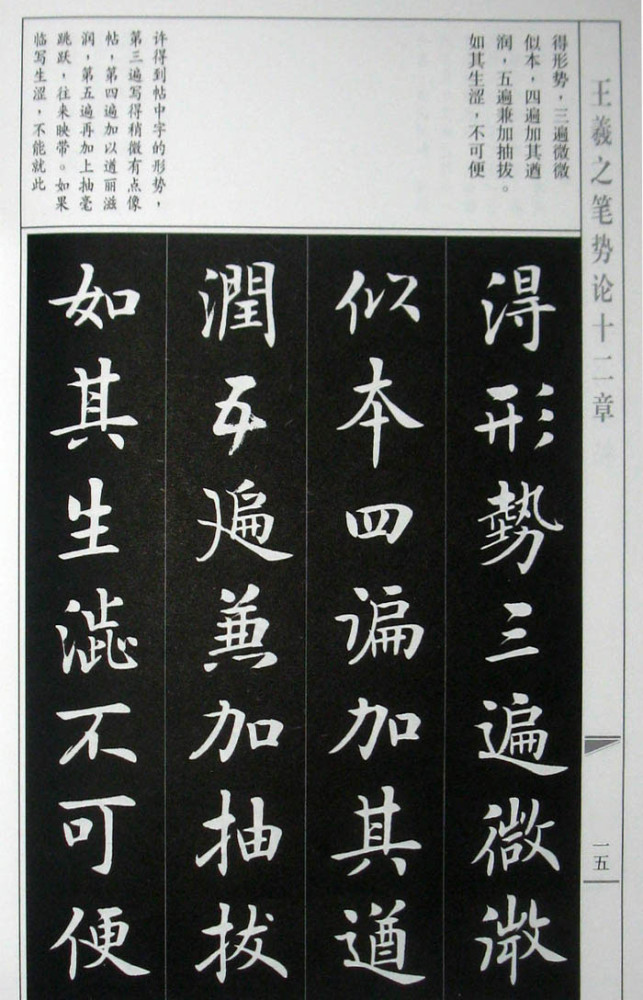 王羲之笔势论十二章
一五
得形势，三遍微微
似本，四遍加其遒
润，五遍兼加抽拔。
如其生涩，不可便
许得到帖中字的形势，
第三遍写得稍微有点像
帖，第四遍加以遒丽滋
润，第五遍再加上抽毫
跳跃，往来映带。如果
临写生涩，不能就此
得形勢三遍微微
似本四遍加其遒
潤五遍兼加抽拔
如其生澁不可便